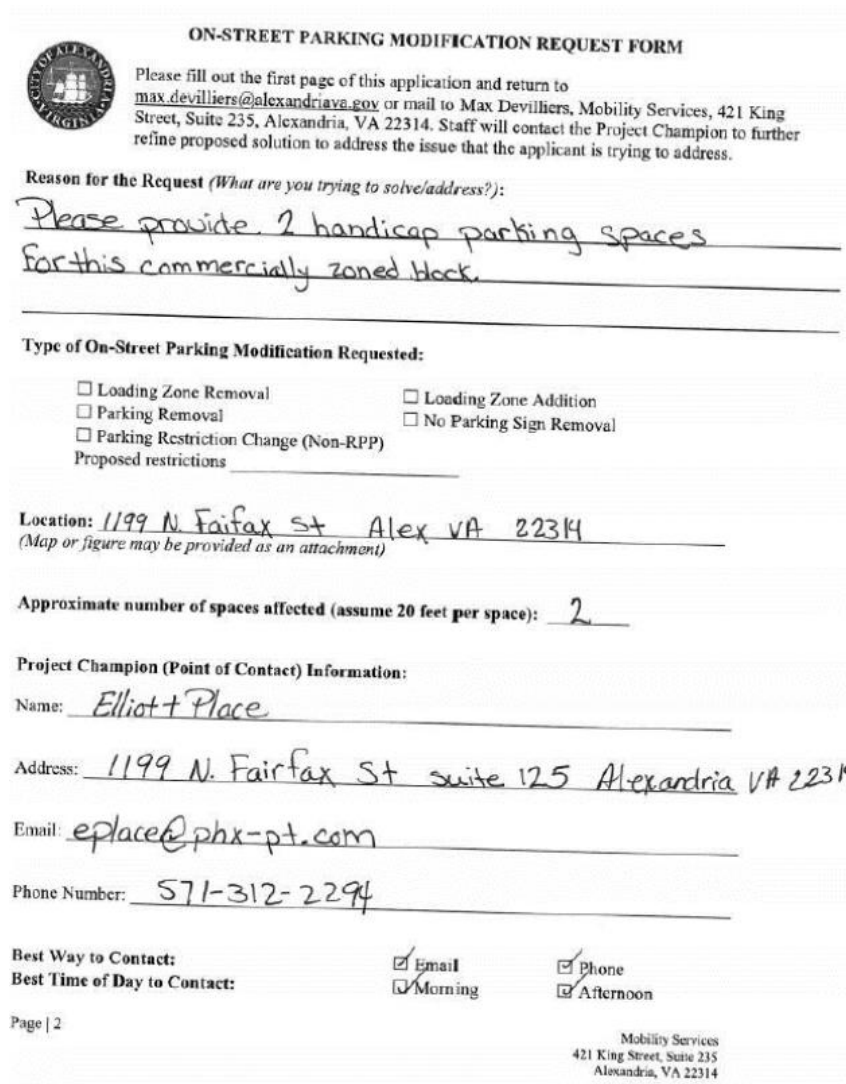 ON-STREET PARKING MODIFICATION REQUEST FORM
CITY OF ALEXANDRIA VIRGINIA
Please fill out the first page of this application and return to
max.devilliers@alexandriava.gov or mail to Max Devilliers, Mobility Services, 421 King
Street, Suite 235, Alexandria, VA 22314. Staff will contact the Project Champion to further
refine proposed solution to address the issue that the applicant is trying to address.
Reason for the Request (What are you trying to solve/address?):
Please provide 2 handicap parking spaces
for this commercially zoned block.
Type of On-Street Parking Modification Requested:
☐ Loading Zone Removal ☐ Loading Zone Addition
☐ Parking Removal ☐ No Parking Sign Removal
☐ Parking Restriction Change (Non-RPP)
Proposed restrictions
Location: 1199 N. Faifax St Alex VA 22314
(Map or figure may be provided as an attachment)
Approximate number of spaces affected (assume 20 feet per space): 2
Project Champion (Point of Contact) Information:
Name: Elliott Place
Address: 1199 N. Fairfax St suite 125 Alexandria VA 22314
Email: eplace@phx-pt.com
Phone Number: 571-312-2294
Best Way to Contact: ☑ Email ☑ Phone
Best Time of Day to Contact: ☑ Morning ☑ Afternoon
Page | 2
Mobility Services
421 King Street, Suite 235
Alexandria, VA 22314